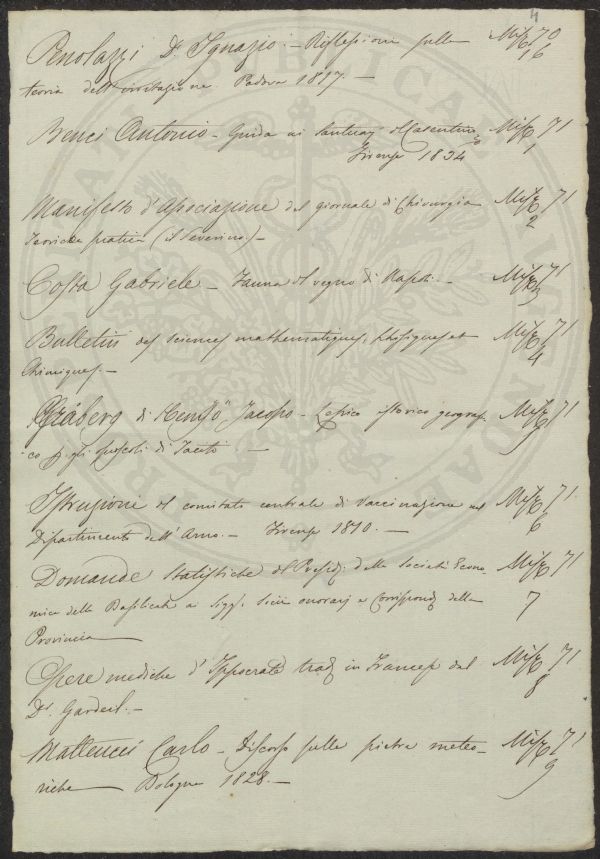 4
Penolazzi Dr. Ignazio. - Riflessioni sulla Misc. 70
teoria dell'irritazione. Padova 1817. - 16
Benci Antonio - Guida ai Santuarj del Casentino Misc. 71
Firenze 1834 1
Manifesto d'Associazione del giornale di Chirurgia Misc. 71
Teorica pratica (il Severino) - 2
Costa Gabriele - Fauna del regno di Napoli. - Misc. 71
3
Bulletin des Sciences mathematiques, Phisiques et Misc. 71
Chimiques. - 4
Gräberg di Hemsö Jacopo - Lessico istorico geografi- Misc. 71
co p. gli opuscoli di Tacito - 5
Istruzioni del comitato centrale di Vaccinazione nel Misc. 71.
Dipartimento dell'Arno. - Firenze 1810. - 6
Domande Statistiche del Presid. della Società Econo- Misc. 71
mica della Basilicata a Sigg. Socii onorarj e Corrispond. della 7
Provincia
Opere mediche d'Ippocrate trad. in Francese dal Misc. 71
Dr. Gardeil. - 8
Matteucci Carlo - Discorso sulle pietre meteo- Misc. 71
riche Bologna 1828. - 9